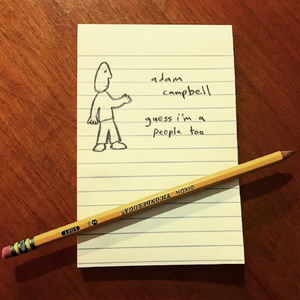 adam
campbell
guess i'm a
people too
DIXON TICONDEROGA